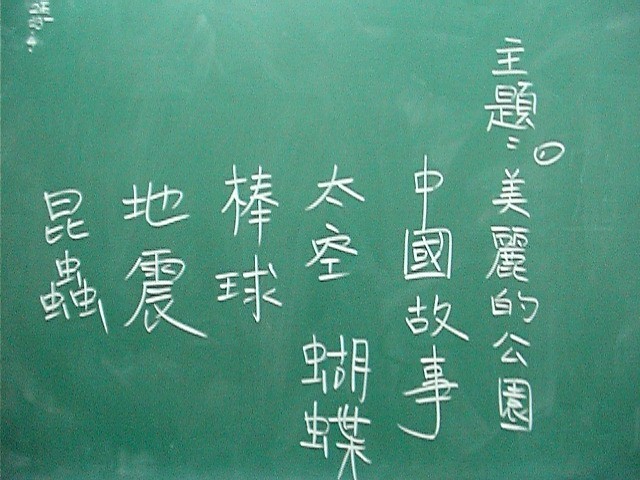 主題：美麗的公園
中國故事
太空 蝴蝶
棒球
地震
昆蟲